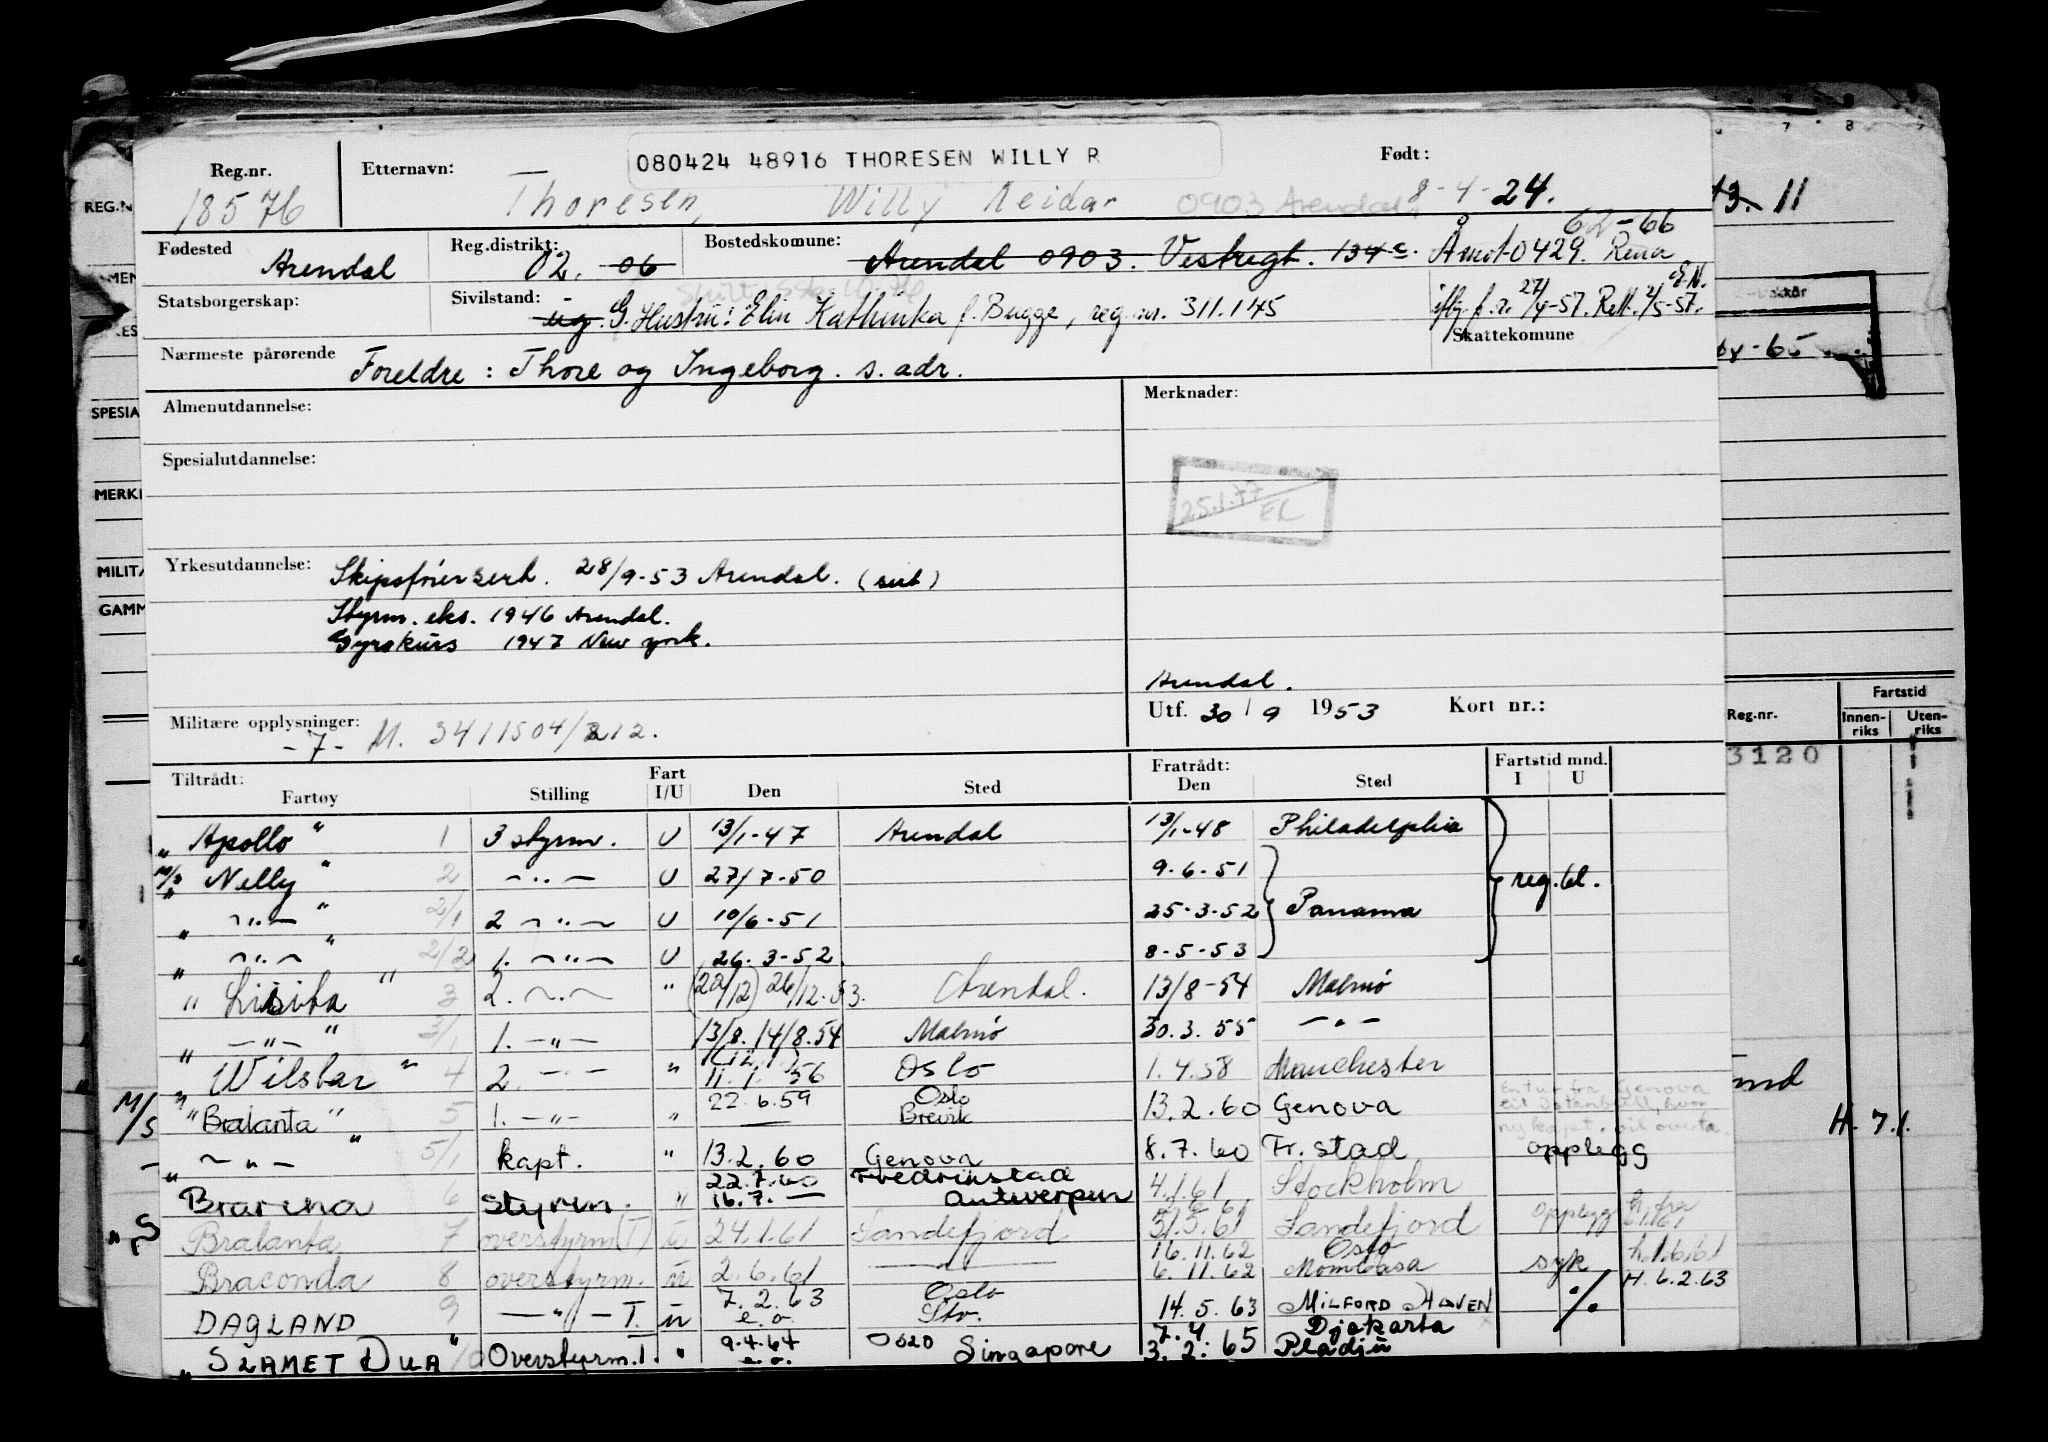 080424 48916 THORESEN WILLY R
Reg.nr. Etternavn: Født:
18576 Thoresen, Willy Reidar 0903 Arendal 8-4-24.
Fødested Arendal Reg.distrikt: 02. 06 Bostedskomune: Arendal 0903. Vestregt. 134 c. Åmot 0429. Rena 62-66
Statsborgerskap: Sivilstand: ug. G. Hustru: Elin Kathinka f. Bugge, reg.nr. 311.145
Skattekomune
Nærmeste pårørende Foreldre: Thore og Ingeborg. s. adr.
Almenutdannelse: Merknader:
Spesialutdannelse:
25.1.77 EL
Yrkesutdannelse: Skipsførersert. 28/9-53 Arendal.
Styrm. eks. 1946 Arendal.
Gyrokurs 1947 New York.
Arendal.
Utf. 30/9 1953 Kort nr.:
Militære opplysninger:
-7- M. 3411504/212.
Tiltrådt: Fratrådt: Fartstid mnd.
Fartøy Stilling Fart I/U Den Sted Den Sted I U
"Apollo" 1 3 styrm. U 13/1-47 Arendal 13/1-48 Philadelphia
M/S "Nelly" 2 —"— U 27/7-50 9.6.51 reg.bl.
"—"—" 2/1 2 —"— U 10/6-51 25-3-52 Panama
"—"—" 2/2 1. —"— U 26.3-52. 8-5-53
"Lisita" 3 2. —"— " (22/12) 26/12.53. Arendal. 13/8-54 Malmø
"—"—" 3/1 1. —"— 13/8. 14/8.54 Malmø 30.3.55 —"—
"Wilstar" 4 2. —"— " (12.1) 11.1.56 Oslo 1.4.58 Manchester
M/S "Bralanta" 5 1. —"— " 22.6.59 Oslo Brevik 13.2.60 Genova
"—"—" 5/1 kapt. " 13.2.60 Genova 8.7.60 Fr.stad opplegg
Brarena 6 styrm. " 22.7.60 16.7. — Fredrikstad Antwerpen 4.1.61 Stockholm
Bralanta 7 overstyrm(T) u 24.1.61 Sandefjord 31.5.61 Sandefjord opplegg
Braconda 8 overstyrm. u 2.6.61 —"— 16.11.62 6.11.62 Oslo Mombasa syk H. 6.2.63
DAGLAND 9 —"— T. u 7.2.63 e.o. Oslo Sto. 14.5.63 MILFORD HAVEN %
"SLAMET DUA" 10 Overstyrm.T. " 9.4.64 e.o. Oslo Singapore 7.4. 3.2.65 Djakarta Pladju
REG.N
SPESIA
MERKI
MILITÆ
GAMM
Reg.nr. Fartstid
Innen-riks Uten-riks
3120
H. 7.1.